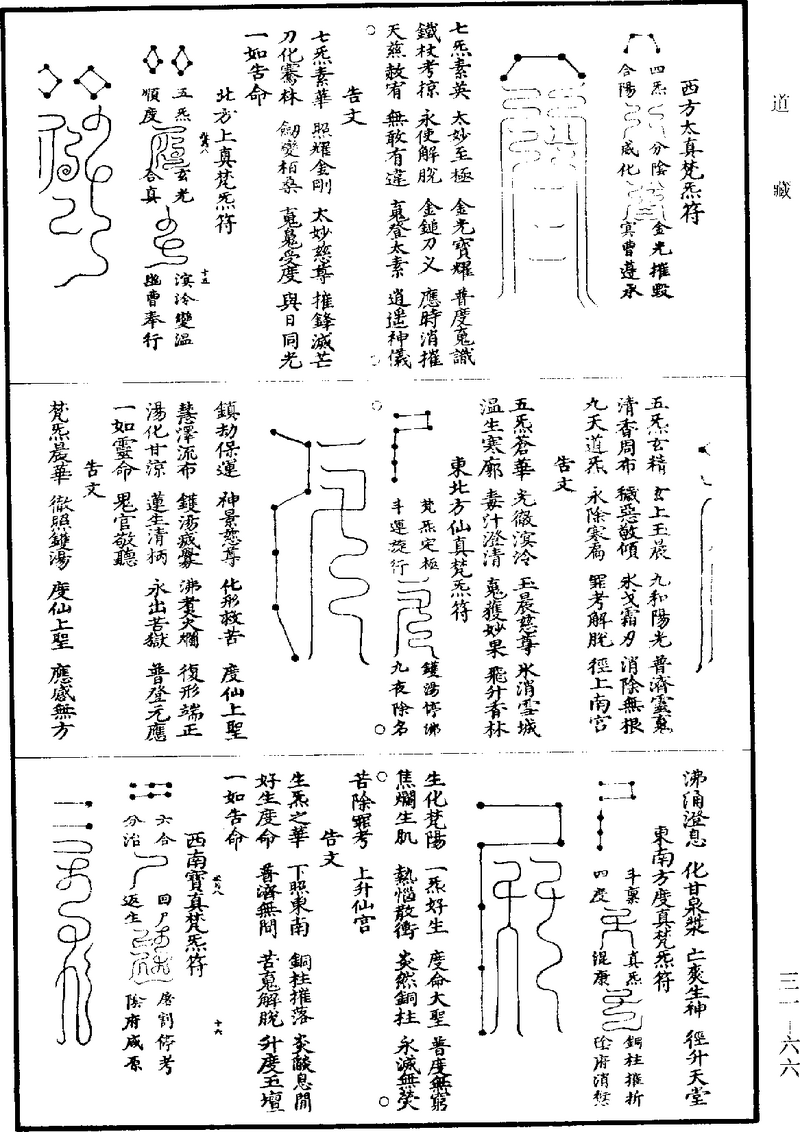 道藏
西方太真梵炁符
四炁 分陰 金光摧毀
合陽 咸化 冥曹遵承
七炁素英 太妙至極 金光寶耀 普度䰟識
鐵杖考掠 永使解脫 金鎚刀义 應時消摧
天慈赦宥 無敢有違 䰟登太素 逍遥神儀
告文
七炁素華 照耀金剛 太妙慈尊 摧鋒滅芒
刀化騫林 劒變栢桑 䰟䰟受度 與日同光
一如告命
北方上真梵炁符
五炁 玄光 溟泠變温
順度 合真 幽曹奉行
十五
五炁玄精 玄上玉晨 九和陽光 普濟靈䰟
清香周布 穢惡散傾 氷戈霜刃 消除無根
九天道炁 永除寒扃 罪考解脫 徑上南宫
告文
五炁蒼華 光徹溟泠 玉晨慈尊 氷消雪城
温生寒廓 毒汁澄清 䰟獲妙果 飛升香林
東北方仙真梵炁符
梵炁定極 鑊湯停沸
斗運旋行 九夜除名
鎮劫保運 神景慈尊 化形救苦 度仙上聖
慧澤流布 鑊湯威㸑 沸煑火爛 復形端正
湯化甘涼 蓮生清柄 永出苦獄 普登元應
一如靈命 鬼官敬聽
告文
梵炁晨華 徹照鑊湯 度仙上聖 應感無方
沸涌澄息 化甘泉漿 亡爽生神 徑升天堂
東南方度真梵炁符
斗禀 真炁 銅柱摧折
四度 混康 陰府消愆
生化梵陽 一炁好生 度命大聖 普度無窮
焦爛生肌 熱惱散衝 炎然銅柱 永滅無熒
苦除罪考 上升仙宫
告文
生炁之華 下照東南 銅柱摧落 炎酸息閒
好生度命 普濟無間 苦䰟解脫 升度玉壇
一如告命
西南寶真梵炁符
六合 回尸 屠割停考
分治 返生 陰府咸原
十六
三一—六六